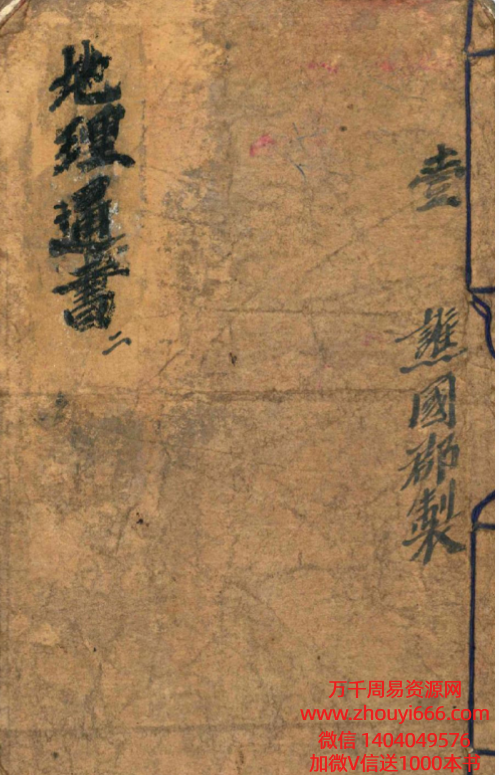 壹
譙國郡製
地理通書
二
万千周易资源网
www.zhouyi666.com
微信 1404049576
加微V信送1000本书